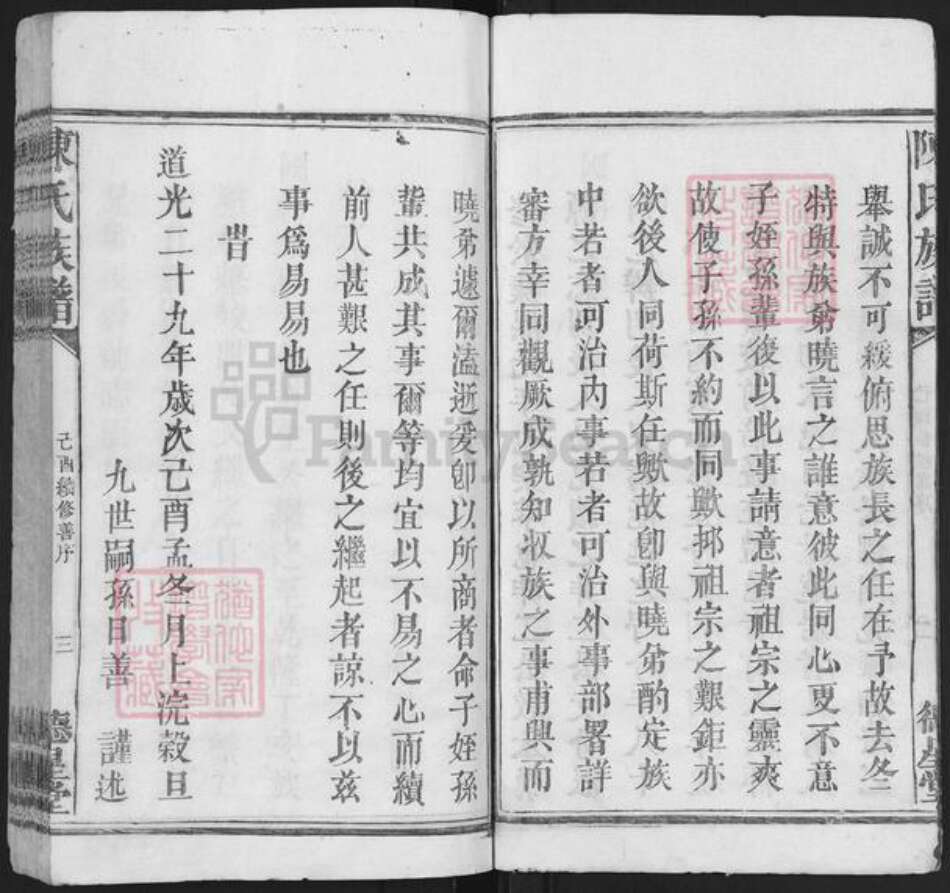 陳氏族譜
舉誠不可緩俯思族長之任在予故去冬
特與族弟曉言之誰意彼此同心更不意
子姪孫輩後以此事請意者祖宗之靈爽
故使子孫不約而同歟抑祖宗之艱鉅亦
欲後人同荷斯任歟故卽與曉弟酌定族
中若者可治內事若者可治外事部署詳
審方幸同觀厥成孰知收族之事甫興而
德星堂
曉弟遽爾溘逝爰卽以所商者命子姪孫
輩共成其事爾等均宜以不易之心而續
前人甚艱之任則後之繼起者諒不以茲
事爲易易也
旹
道光二十九年歲次己酉孟冬月上浣穀旦
九世嗣孫日善 謹述
陳氏族譜
己酉續修善序
三
德星堂
FamilySearch